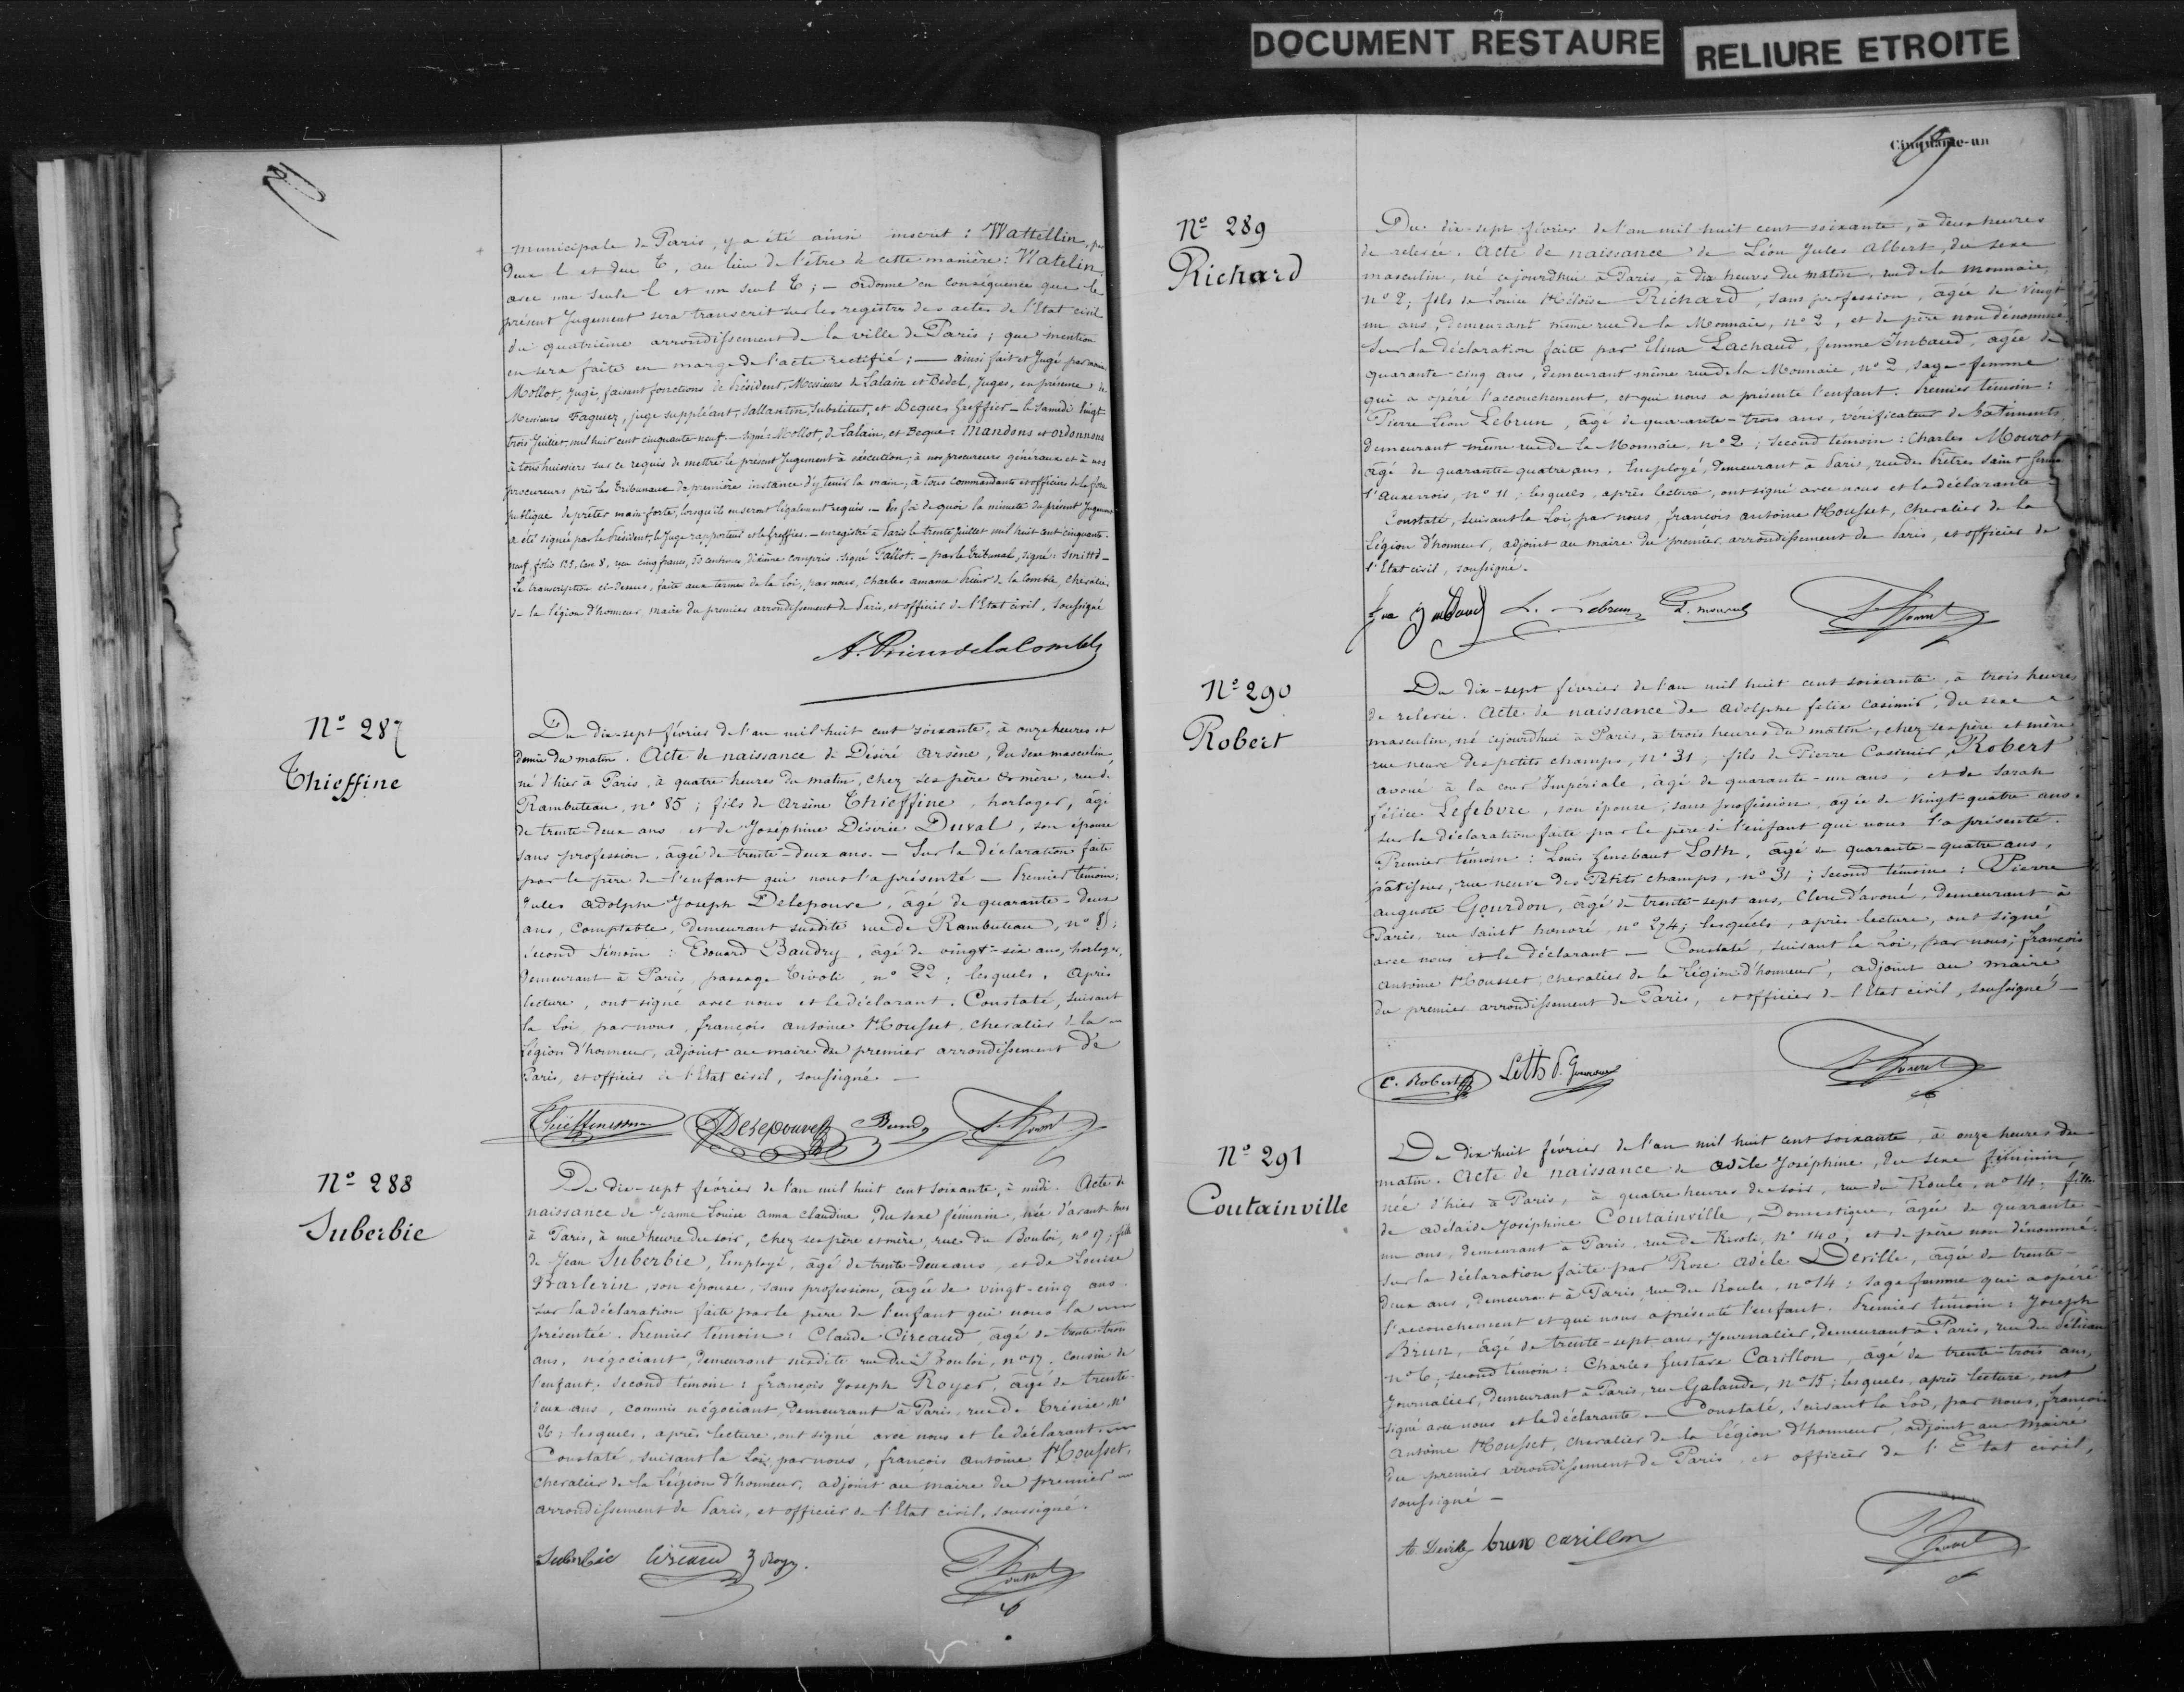 DOCUMENT RESTAURE
RELIURE ETROITE
municipale de Paris, y a été ainsi inscrit : Wattellin, par
deux l et deux t, au lieu de l'être de cette manière : Watelin
avec une seule l et un seul t ; — ordonne en conséquence que le
présent Jugement sera transcrit sur les registres des actes de l'Etat civil
du quatrième arrondissement de la ville de Paris ; que mention
en sera faite en marge de l'acte rectifié ; — ainsi fait et Jugé par
Mollot, Juge, faisant fonctions de Président, Messieurs de Lalain et Bedel, Juges, en présence de
Messieurs Faguiez, juge suppléant, Sallantin, Substitut, et Beque, Greffier — le Samedi Vingt-
trois Juillet, mil huit cent cinquante-neuf. — signé : Mollot, de Lalain, et Beque : Mandons et ordonnons
à tous huissiers sur ce requis de mettre le présent Jugement à exécution, à nos procureurs généraux et à nos
procureurs près les tribunaux de première instance d'y tenir la main, à tous commandants et officiers de la force
publique de prêter main-forte, lorsqu'ils en seront légalement requis. — En foi de quoi la minute du présent Jugement
a été signée par le Président, le Juge rapporteur et le Greffier. — enregistré à Paris le trente Juillet mil huit cent cinquante-
neuf, folio 125, case 8, reçu cinq francs, 50 centimes, dixième compris. signé Tallot. — par le tribunal, signé : Smitto —
La transcription ci-dessus, faite aux termes de la loi, par nous, Charles amance Prieur de la Comble, Chevalier
de la légion d'honneur maire du premier arrondissement de Paris, et officier de l'Etat civil, soussigné
A. Prieur de la Comble
Nº 287
Thieffine
Du dix-sept février de l'an mil huit cent soixante, à onze heures et
demie du matin. Acte de naissance de Désiré Arsène, du sexe masculin
né d'hier à Paris, à quatre heures du matin, chez ses père et mère, rue de
Rambuteau, nº 85 ; fils de Arsène Thieffine, horloger, âgé
de trente-deux ans et de Joséphine Désirée Duval, son épouse
sans profession, âgée de trente-deux ans. — Sur la déclaration faite
par le père de l'enfant qui nous l'a présenté — Premier témoin :
Jules Adolphe Joseph Delepouve, âgé de quarante-deux
ans, comptable, demeurant susdite rue de Rambuteau, nº 85 ;
Second témoin : Edouard Baudry, âgé de vingt-six ans, horloger,
demeurant à Paris, passage Tivoli, nº 22 ; lesquels, Après
lecture, ont signé avec nous et le déclarant. Constaté, suivant
la Loi, par nous, françois antoine Housset, chevalier de la
légion d'honneur, adjoint au maire du premier arrondissement de
Paris, et officier de l'Etat civil, soussigné. —
Delepouve
Nº 288
Suberbie
Du dix-sept février de l'an mil huit cent soixante, à midi. Acte de
naissance de Jeanne Louise Anna Claudine, du sexe féminin, née d'avant-hier
à Paris, à une heure du soir, chez ses père et mère, rue du Bouloi, nº 17 ; fille
de Jean Suberbie, Employé, âgé de trente-deux ans, et de Louise
Barlerin, son épouse, sans profession, âgée de vingt-cinq ans.
Sur la déclaration faite par le père de l'enfant qui nous l'a
présentée. Premier témoin : Claude Circaud, âgé de trente-trois
ans, négociant, demeurant susdite rue du Bouloi, nº 17, cousin de
l'enfant. Second témoin : françois Joseph Royer, âgé de trente-
deux ans, commis négociant, demeurant à Paris, rue de Trévise, nº
26 ; lesquels, après lecture, ont signé avec nous et le déclarant.
Constaté, suivant la Loi, par nous, françois antoine Housset,
chevalier de la Légion d'honneur, adjoint au maire du premier
arrondissement de Paris, et officier de l'Etat civil, soussigné.
Suberbie Circaud J Royer.
Cinquante-un
Nº 289
Richard
Du dix-sept février de l'an mil huit cent soixante, à deux heures
de relevée. Acte de naissance de Léon Jules Albert, du sexe
masculin, né cejourdhui à Paris, à dix heures du matin, rue de la Monnaie,
nº 2 ; fils de Louise Héloïse Richard, sans profession, âgée de vingt
un ans, demeurant même rue de la Monnaie, nº 2, et de père non dénommé.
Sur la déclaration faite par Elina Lachaud, femme Imbaud, âgée de
quarante-cinq ans, demeurant même rue de la Monnaie, nº 2, sage-femme
qui a opéré l'accouchement, et qui nous a présenté l'enfant. Premier témoin :
Pierre Léon Lebrun, âgé de quarante-trois ans, vérificateur de bâtiments,
demeurant même rue de la Monnaie, nº 2 ; Second témoin : Charles Mourot
âgé de quarante quatre ans. Employé, demeurant à Paris, rue des Prêtres Saint Germain
l'Auxerrois, nº 11 ; lesquels, après lecture, ont signé avec nous et la déclarante.
Constaté, suivant la Loi, par nous, françois antoine Housset, chevalier de la
Légion d'honneur, adjoint au maire du premier arrondissement de Paris, et officier de
l'Etat civil, soussigné.
L. Lebrun
Nº 290
Robert
Du dix-sept février de l'an mil huit cent soixante, à trois heures
de relevée. Acte de naissance de Adolphe felix Casimir, du sexe
masculin, né cejourdhui à Paris, à trois heures du matin, chez ses père et mère
rue neuve des petits champs, nº 31 ; fils de Pierre Casimir Robert
avoué à la cour Impériale, âgé de quarante-un ans, et de Sarah
félicie Lefebvre, son épouse, sans profession, âgée de vingt-quatre ans.
sur la déclaration faite par le père de l'enfant qui nous l'a présenté.
Premier témoin : Louis Loth, âgé de quarante-quatre ans,
pâtissier, rue neuve des Petits champs, nº 31 ; second témoin : Pierre
auguste Gourdon, âgé de trente-sept ans, Clerc d'avoué, demeurant à
Paris, rue Saint honoré, nº 274 ; lesquels, après lecture, ont signé
avec nous et le déclarant — Constaté, suivant la Loi, par nous, françois
antoine Housset, chevalier de la Légion d'honneur, adjoint au maire
du premier arrondissement de Paris, et officier de l'Etat civil, soussigné —
C. Robert Loth
Nº 291
Coutainville
Du dix huit février de l'an mil huit cent soixante, à onze heures du
matin. Acte de naissance de Adèle Joséphine, du sexe féminin,
née d'hier à Paris, à quatre heures du soir, rue du Roule, nº 14 ; fille
de Adélaïde Joséphine Coutainville, Domestique, âgée de quarante-
un ans, demeurant à Paris, rue de Rivoli, nº 140, et de père non dénommé.
Sur la déclaration faite par Rose Adèle Deville, âgée de trente-
deux ans, demeurant à Paris, rue du Roule, nº 14 : sage femme qui a opéré
l'accouchement et qui nous a présenté l'enfant. Premier témoin : Joseph
Brun, âgé de trente-sept ans, Journalier, demeurant à Paris, rue du Pélican
nº 6 ; second témoin : Charles Gustave Carillon, âgé de trente-trois ans,
Journalier, demeurant à Paris, rue Galande, nº 15 ; lesquels, après lecture, ont
signé avec nous et le déclarante — Constaté, suivant la Loi, par nous, françois
Antoine Housset, chevalier de la Légion d'honneur, adjoint au maire
du premier arrondissement de Paris, et officier de l'Etat civil,
soussigné —
A. Deville brun carillon